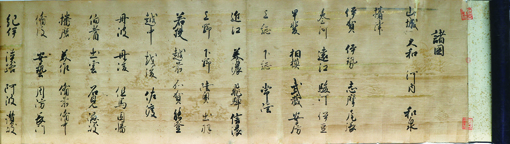 諸國
山城 大和 河内 和泉
攝津
伊賀 伊勢 志摩 尾張
参河 遠江 駿河 伊豆
甲斐 相模 武蔵 安房
上総 下総 常陸
近江 美濃 飛騨 信濃
上野 下野 陸奥 出羽
若狭 越前 加賀 能登
越中 越後 佐渡
丹波 丹後 但馬 因幡
伯耆 出雲 石見 隠岐
播磨 美作 備前 備中
備後 安藝 周防 長門
紀伊 淡路 阿波 讃岐